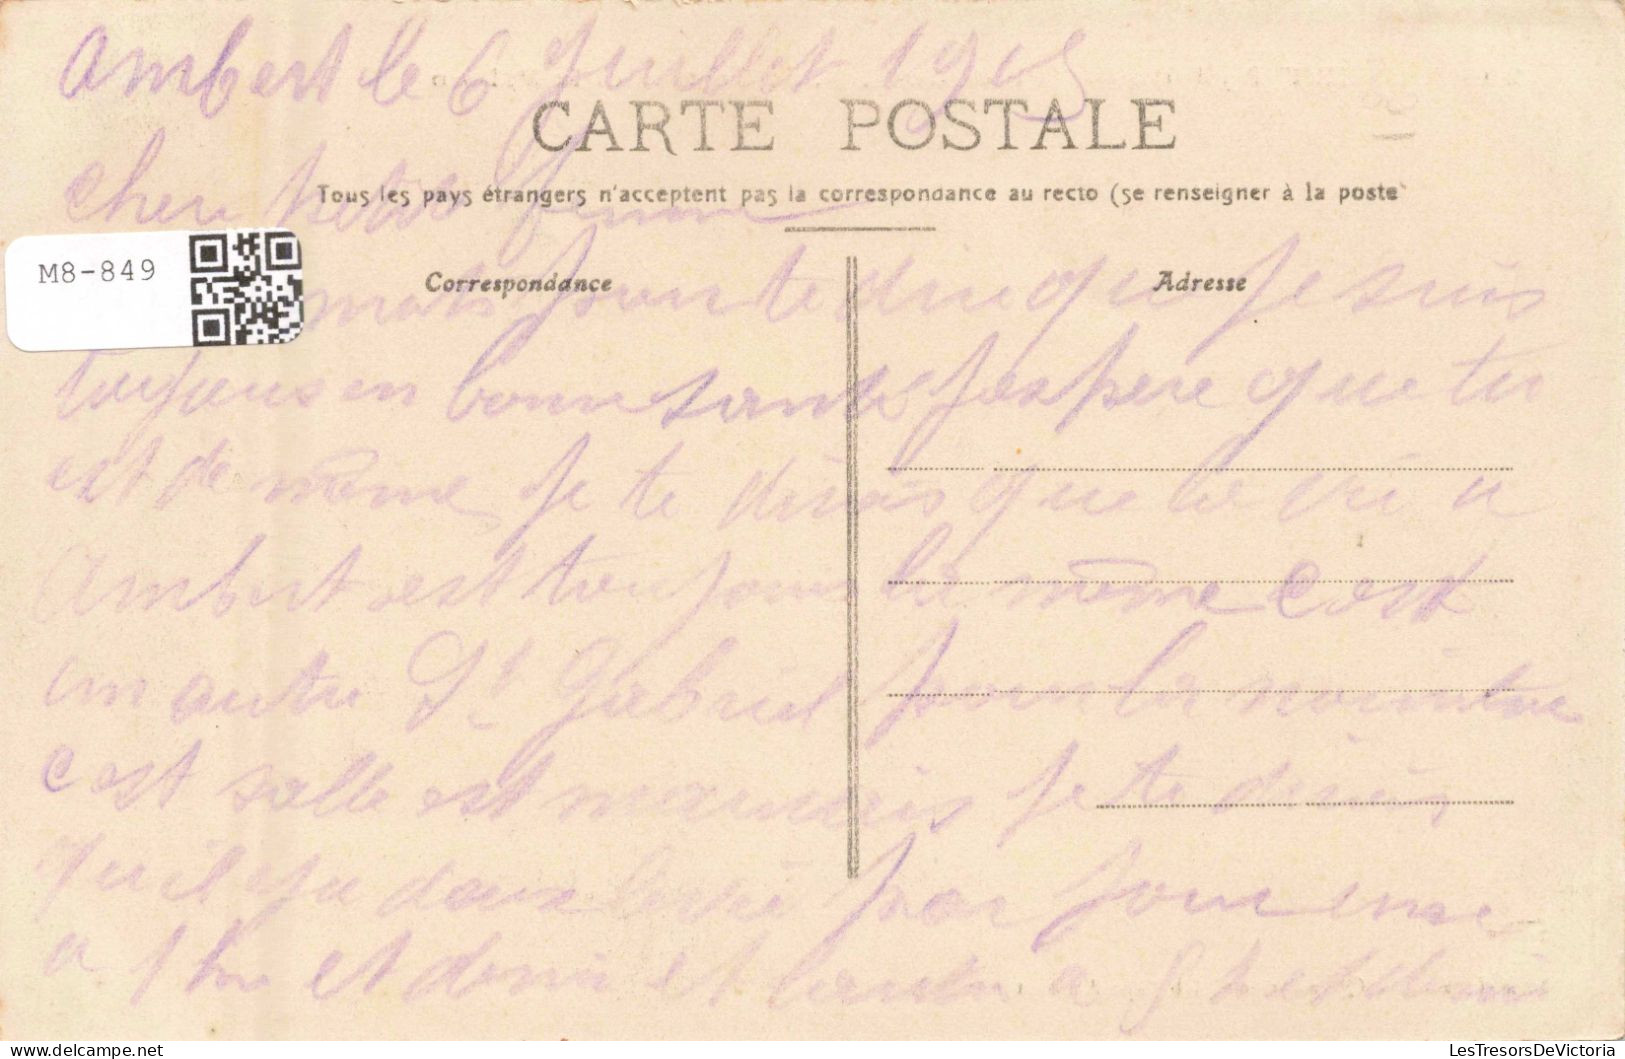 Ambert le 6 Juillet 1915
CARTE POSTALE
Cher petite femme
Tous les pays étrangers n'acceptent pas la correspondance au recto (se renseigner à la poste
M8-849
Correspondance
Adresse
mots pour te dire que je suis
toujours en bonne santé j'espere que tu
est de même je te dirais que la vie a
Ambert est toujours la même c'est
un autre St Gabriel pour la nouriture
c'est salle est mauvais je te dirais
qu'il y a deux par jour une
a 1 h et demi et a 5 h et demi
LesTresorsDeVictoria